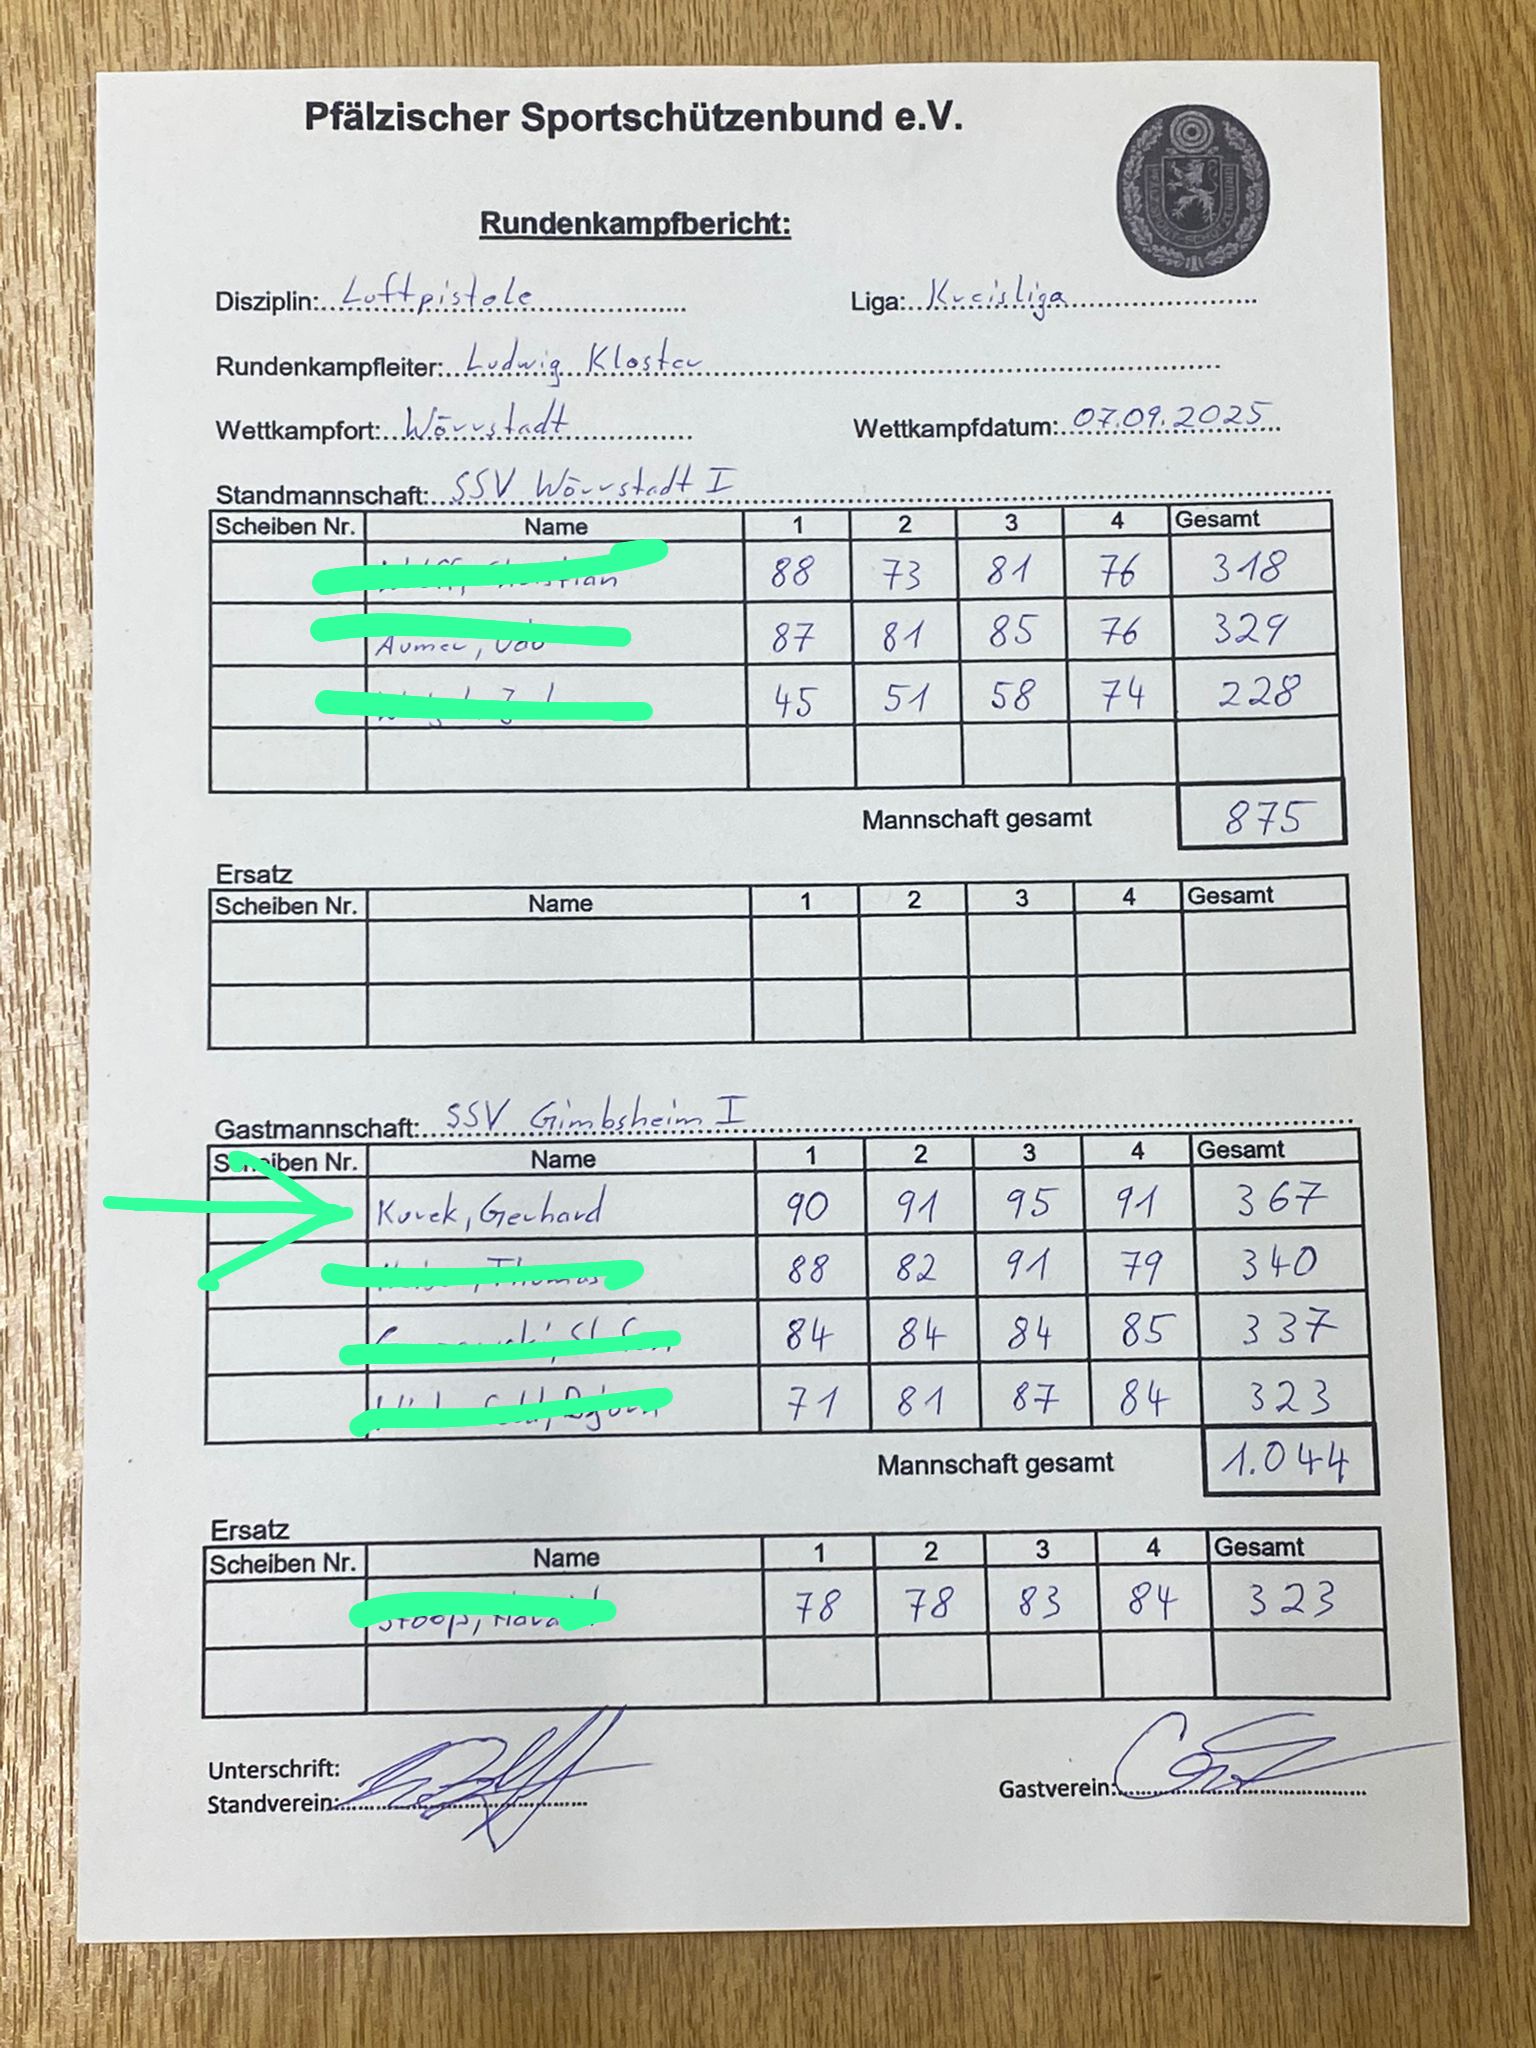 Pfälzischer Sportschützenbund e.V.
Rundenkampfbericht:
Disziplin: Luftpistole Liga: Kreisliga
Rundenkampfleiter: Ludwig Kloster
Wettkampfort: Wörrstadt Wettkampfdatum: 07.09.2025
Standmannschaft: SSV Wörrstadt I
Scheiben Nr. Name 1 2 3 4 Gesamt
88 73 81 76 318
87 81 85 76 329
45 51 58 74 228
Mannschaft gesamt 875
Ersatz
Scheiben Nr. Name 1 2 3 4 Gesamt
Gastmannschaft: SSV Gimbsheim I
Scheiben Nr. Name 1 2 3 4 Gesamt
Kurek, Gerhard 90 91 95 91 367
88 82 91 79 340
84 84 84 85 337
71 81 87 84 323
Mannschaft gesamt 1.044
Ersatz
Scheiben Nr. Name 1 2 3 4 Gesamt
78 78 83 84 323
Unterschrift:
Standverein: Gastverein: